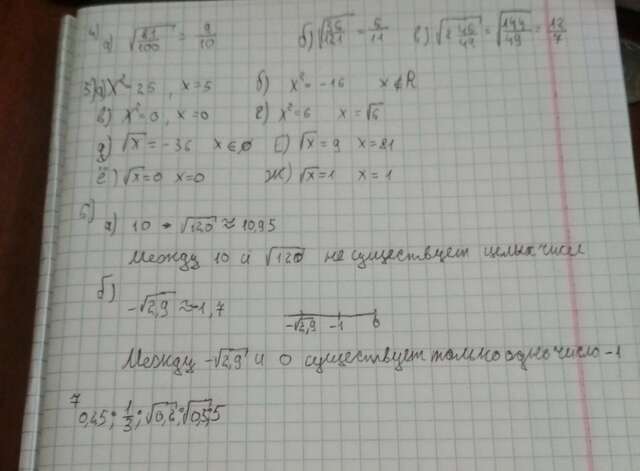 4) а) √81/100 = 9/10 б) √36/121 = 6/11 в) √2 46/49 = √144/49 = 12/7
5) а) x² = 25, x = 5 б) x² = -16 x ∉ R
в) x² = 0, x = 0 г) x² = 6 x = √6
д) √x = -36 x ∈ ∅ е) √x = 9 x = 81
ё) √x = 0 x = 0 ж) √x = 1 x = 1
6)
а) 10 √120 ≈ 10,95
Между 10 и √120 не существует целых чисел
б)
-√2,9 ≈ -1,7
-√2,9 -1 0
Между -√2,9 и 0 существует только одно число -1
7
0,45; 1/3;